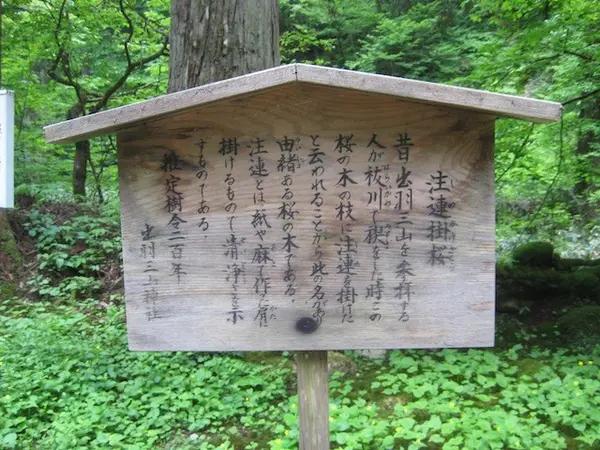 注連掛桜
昔出羽三山を参拝する
人が祓川で禊をした時この
桜の木の枝に注連を掛けた
と云われることから此の名があり
由緒ある桜の木である。
注連とは紙や麻で作り肩に
掛けるもので清浄を示
すものである。
推定樹令二百年
出羽三山神社